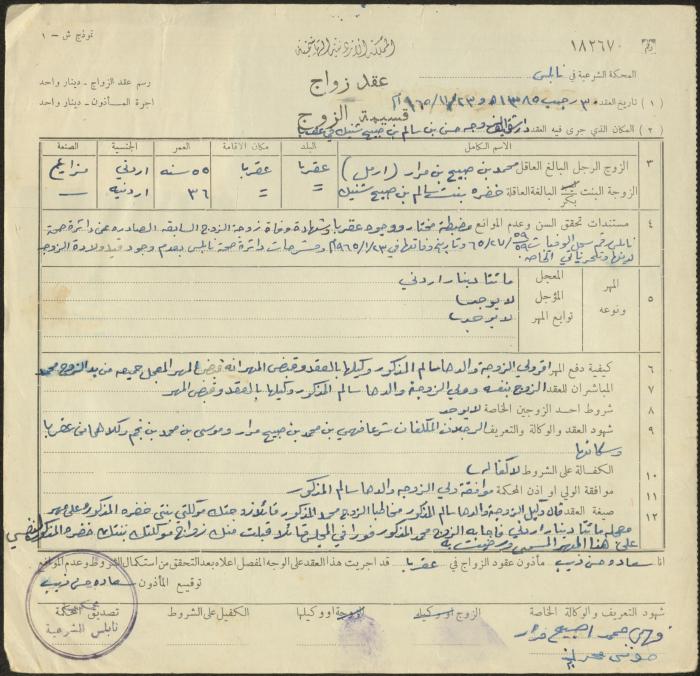 نموذج ش - ١
المملكة الاردنية الهاشمية
رقم ١٨٢٦٧٠
المحكمة الشرعية في نابلس
عقد زواج
رسم عقد الزواج - دينار واحد
اجرة المأذون - دينار واحد
(١) تاريخ العقد ٣٠ رجب ١٣٨٥ هـ و ٢٣/١١/١٩٦٥ م
قسيمة الزوج
(٢) المكان الذي جرى فيه العقد حسن بن سالم بن صبيح شنيك في عقربا
الاسم الكامل البلد مكان الاقامة العمر الجنسية الصنعة
٣ الزوج الرجل البالغ العاقل محمد بن صبيح بن مرار (ارمل) عقربا عقربا ٥٥ سنه اردني مزارع
الزوجة البنت بكر البالغة العاقلة خضره بنت سالم بن صبيح شنيك = = ٣٦ اردنيه —
٤ مستندات تحقق السن وعدم الموانع مضبطة مختار ووجوه عقربا وشهادة وفاة زوجة الزوج السابقة الصادره عن دائرة صحة
نابلس ٦٥/٢٧/ وتاريخ وفاتها في ١٩٦٥/١/٢٣ دائرة صحة نابلس بعدم وجود قيد ولادة الزوجه
لديها الخاصه.
٥ المهر ونوعه
المعجل مائتا دينار اردني
المؤجل لا يوجد
توابع المهر لا يوجد
٦ كيفية دفع المهر اقر ولي الزوجة والدها سالم المذكور وكيلها بالعقد وقبض المهر انه قبض المهر المعجل جميعه من يد الزوج محمد
٧ المباشران للعقد الزوج بنفسه وولي الزوجة والدها سالم المذكور وكيلها بالعقد وقبض المهر
٨ شروط احد الزوجين الخاصة لا يوجد
٩ شهود العقد والوكالة والتعريف الرجلان المكلفان شرعا فهمي بن محمد بن صبيح مرار وموسى بن محمد بن نجم وكلاهما من عقربا
وسكانها
١٠ الكفالة على الشروط لا كفالة
١١ موافقة الولي او اذن المحكمة موافقة ولي الزوجه والدها سالم المذكور
١٢ صيغة العقد قال وكيل الزوجة والدها سالم المذكور مخاطبا الزوج محمد المذكور قائلا زوجتك موكلتي بنتي خضره المذكوره على مهر
معجل مائتا دينار اردني فاجابه الزوج محمد المذكور فورا في المجلس قائلا قبلت منك زواج موكلتك بنتك خضره المذكوره لنفسي
على هذا المهر المسمى ورضيت به
انا سعاده حسن ذيب مأذون عقود الزواج في عقربا قد اجريت هذا العقد على الوجه المفصل اعلاه بعد التحقق من استكمال الشروط وعدم الموانع
توقيع المأذون سعاده حسن ذيب
شهود التعريف والوكالة الخاصة الزوج او وكيله الزوجة او وكيلها الكفيل على الشروط تصديق المحكمة
فهمي محمد صبيح مرار
موسى محمد
محكمة
نابلس الشرعية